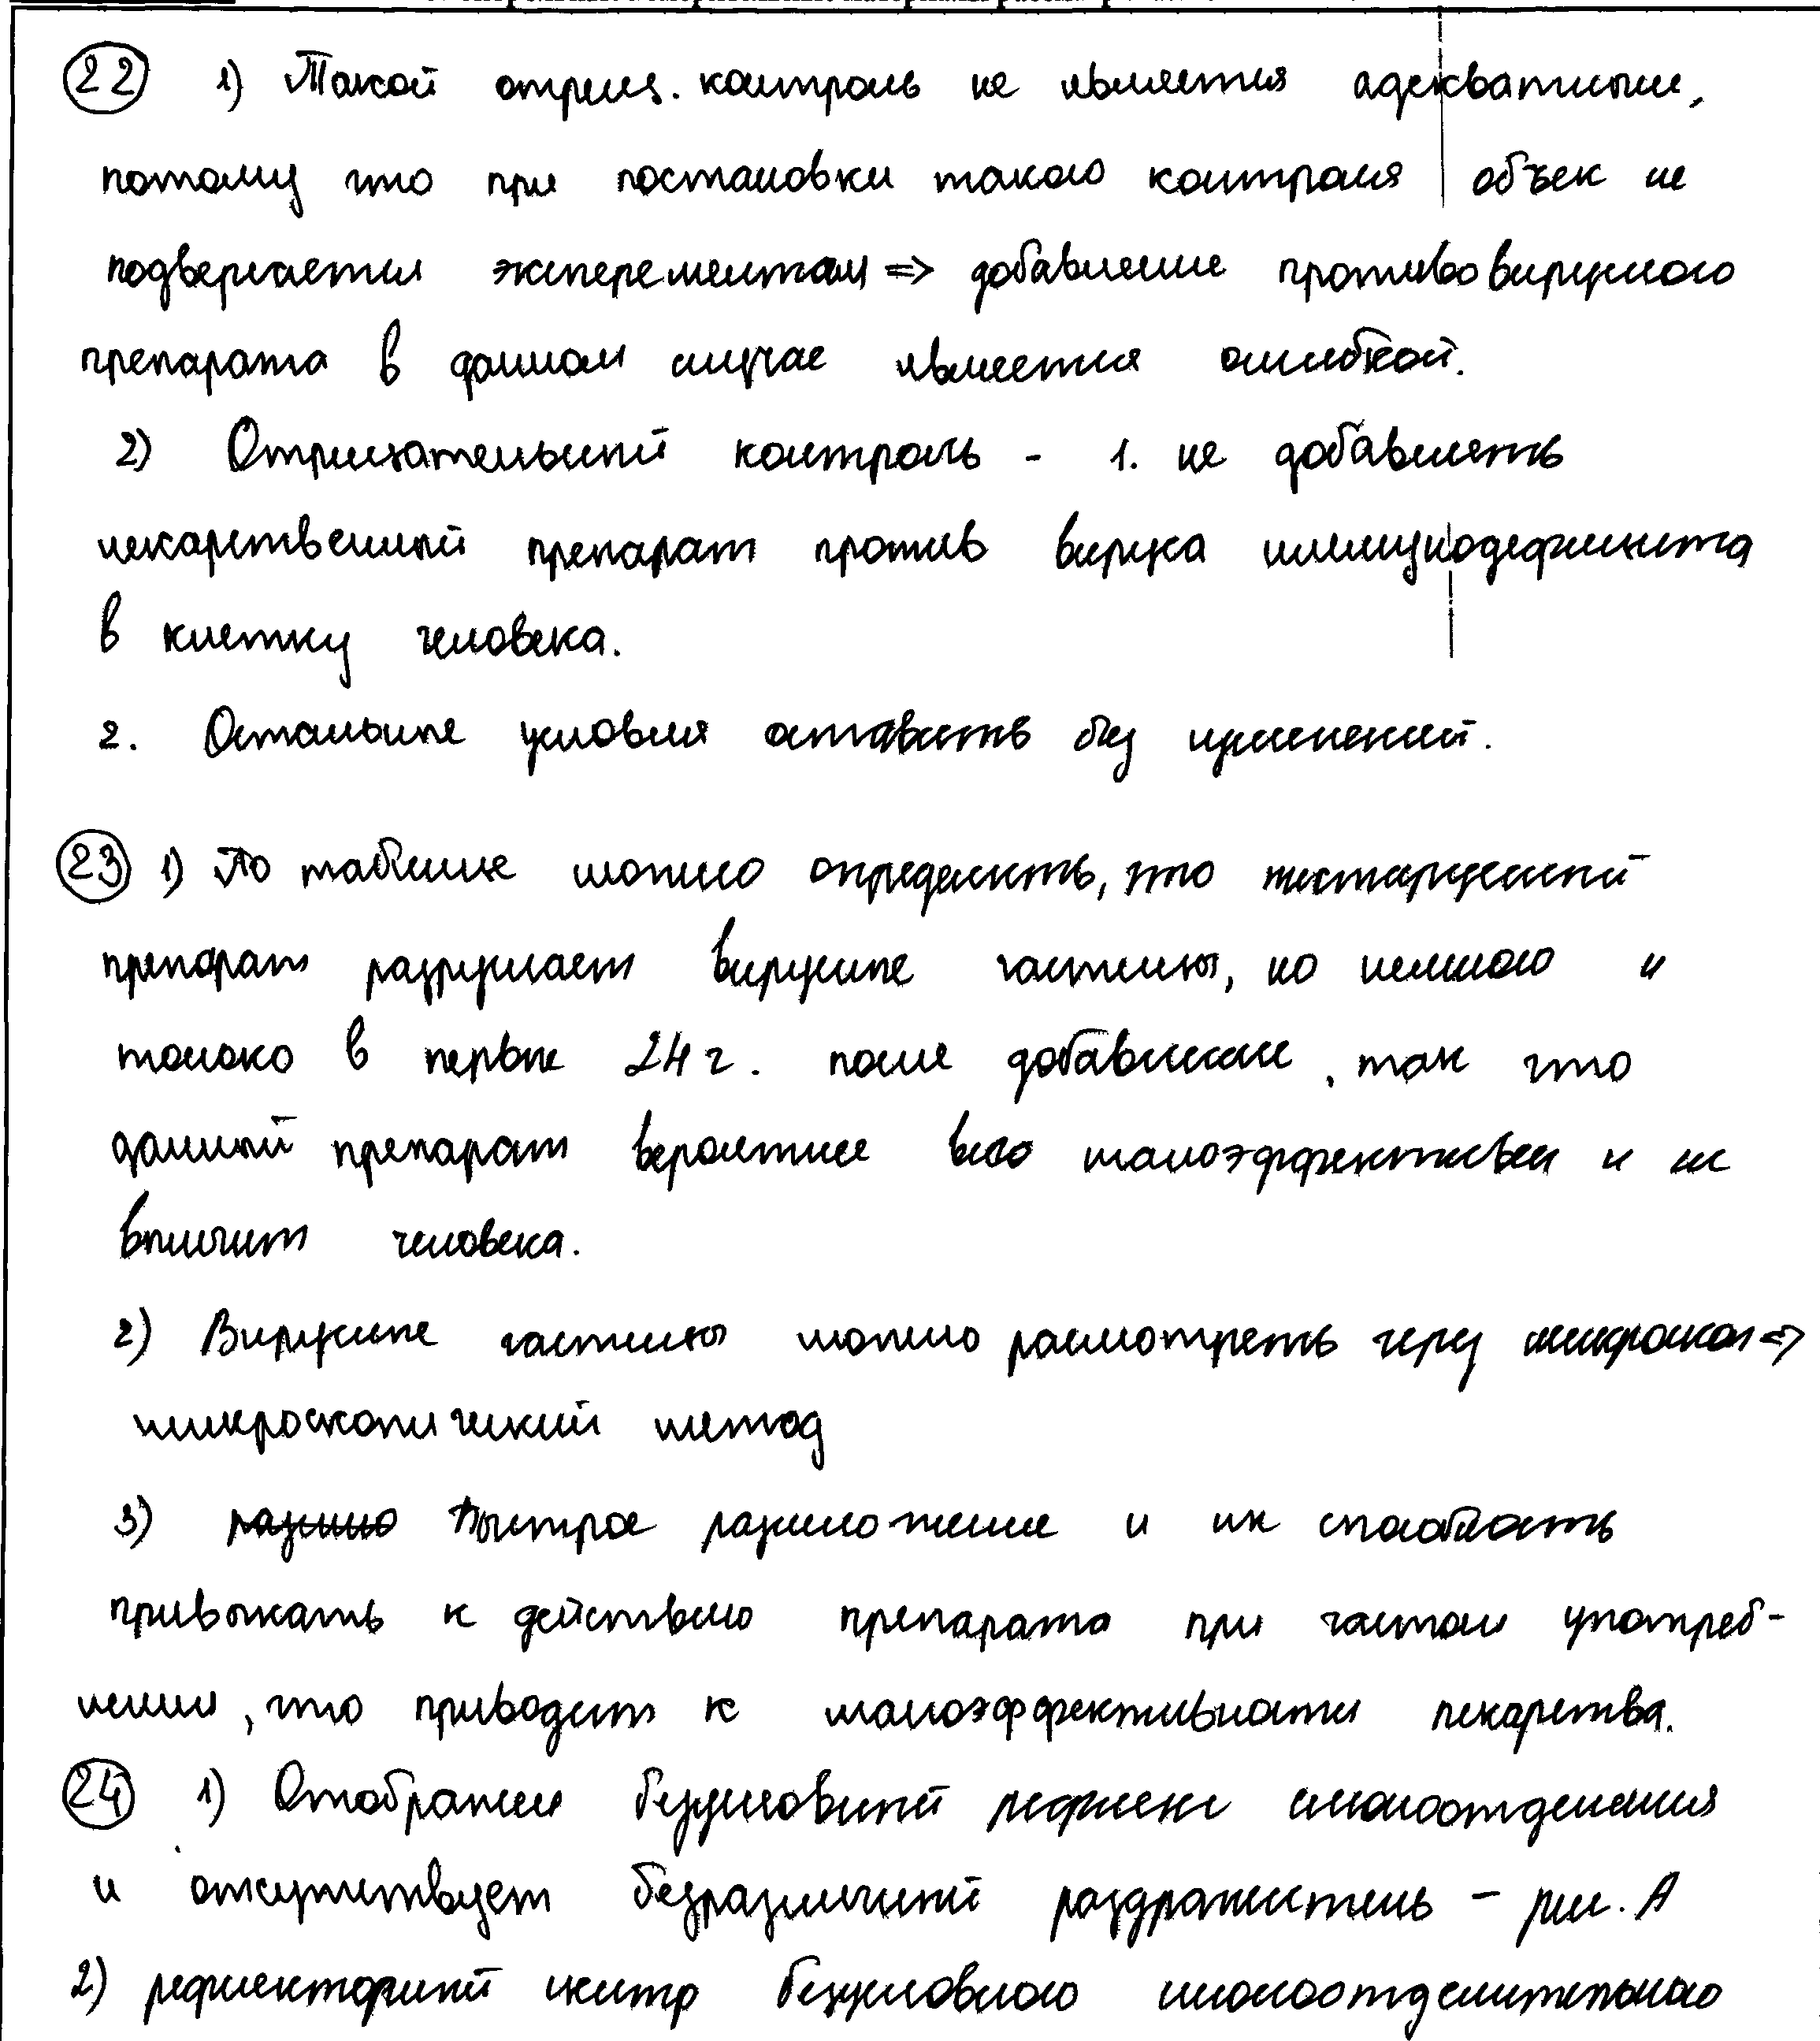 22 1) Такой отриц. контроль не является адекватным,
потому что при постановки такого контроля объек не
подвергается эксперементам => добавление противовирусного
препарата в данном случае является ошибкой.
2) Отрицательный контроль - 1. не добавлять
лекарственный препарат против вируса иммунодефицита
в клетку человека.
2. Остальные условия оставить без изменений.
23 1) По таблице можно определить, что тестируемый
препарат разрушает вирусные частицы, но немного и
только в первые 24 г. после добавления, так что
данный препарат вероятнее всего малоэффективен и не
вылечит человека.
2) Вирусные частицы можно рассмотреть через микроскоп =>
микроскопический метод
3) быстрое размножение и их способность
привыкать к действию препарата при частом употреб-
лении, что приводит к малоэффективности лекарства.
24 1) Отображен безусловный рефлекс слюноотделения
и отсутствует безразличный раздражитель - рис. А
2) рефлекторный центр безусловного слюноотделительного